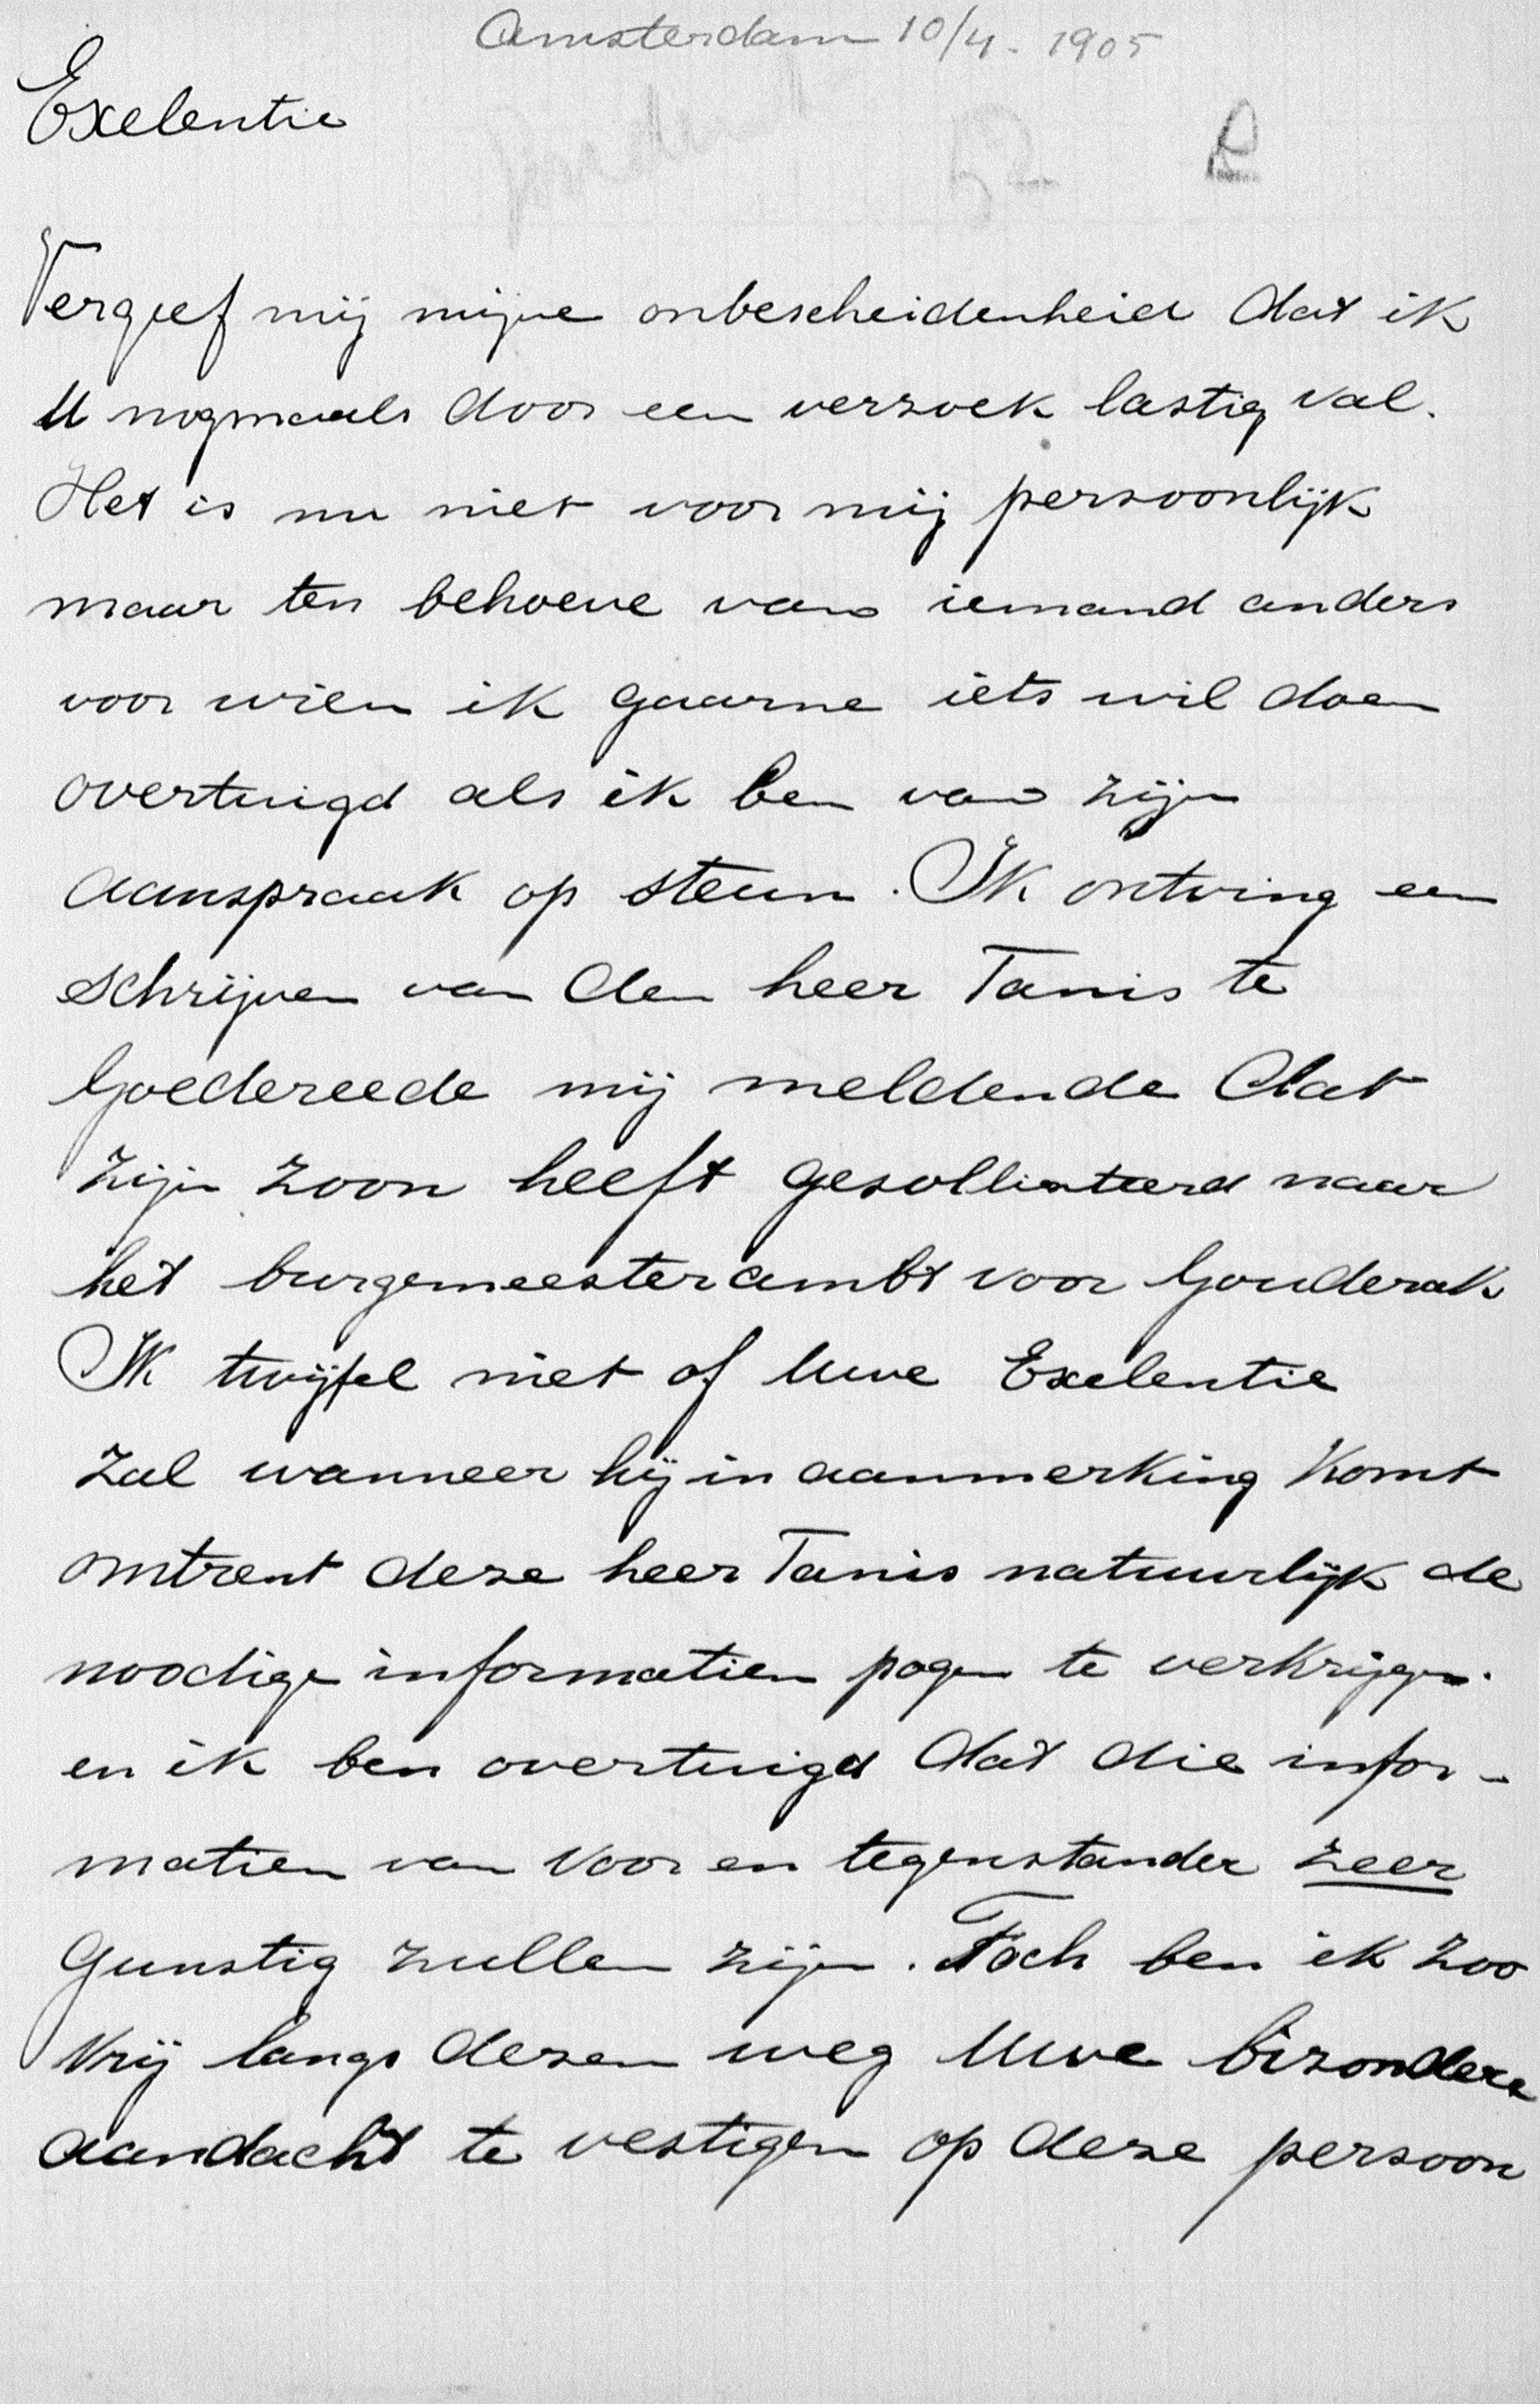 Amsterdam 10/4. 1905
Exelentie
Vergeef mij mijne onbescheidenheid dat ik
U nogmaals door een verzoek lastig val.
Het is nu niet voor mij persoonlijk
maar ten behoeve van iemand anders
voor wien ik gaarne iets wil doen
overtuigd als ik ben van zijn
aanspraak op steun. Ik ontving een
schrijven van den heer Tanis te
Goedereede mij meldende dat
zijn zoon heeft gesolliciteerd naar
het burgemeesterambt voor Gouderak
Ik twijfel niet of Uwe Exelentie
zal wanneer hij in aanmerking komt
omtrent deze heer Tanis natuurlijk de
noodige informatien pogen te verkrijgen.
en ik ben overtuigd dat die infor-
matien van voor en tegenstander zeer
gunstig zullen zijn. Toch ben ik zoo
vrij langs dezen weg Uwe bizondere
aandacht te vestigen op deze persoon